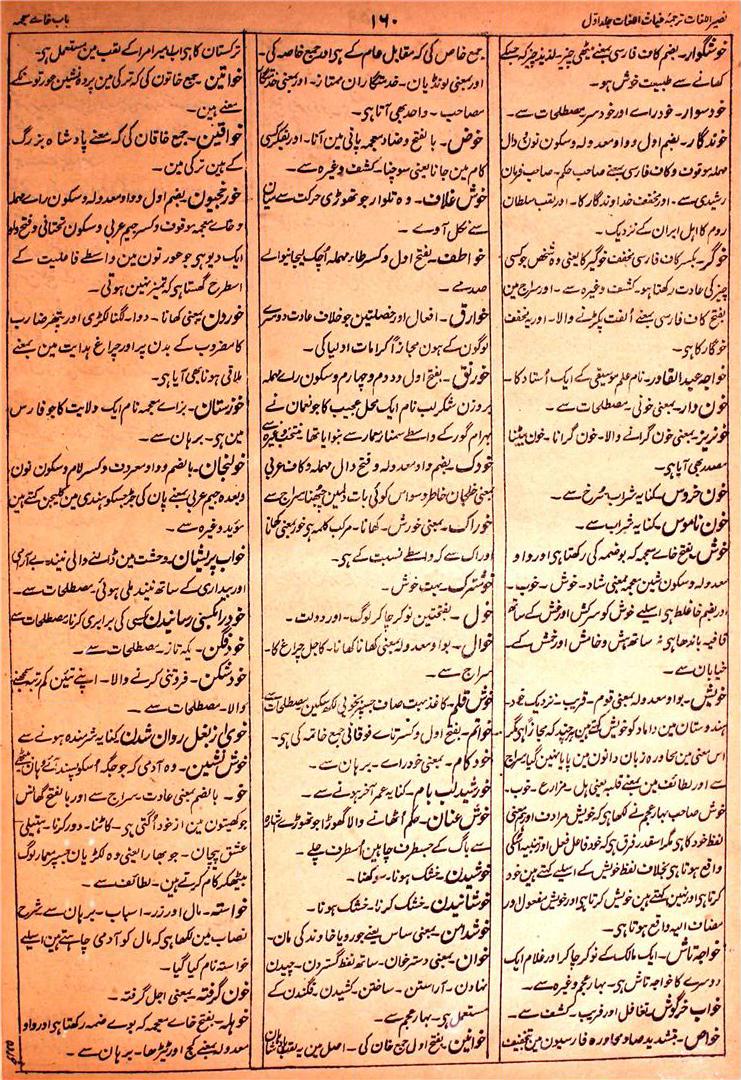 نصیر اللغات ترجمۂ غیاث اللغات جلد اول
۱۶۰
باب خاے معجمہ
خوشگوار۔ بضم کاف فارسی بمعنے میٹھی چیز۔ لذیذ چیز کہ جسکے
کھانے سے طبیعت خوش ہو۔
خودسوار۔ خود راے اور خود سر مصطلحات سے۔
خوندگار۔ بضم اول و واو معدولہ و سکون نون و دال
مہملہ موقوف و کاف فارسی بمعنے صاحب حکم۔ صاحب فرمان
رشیدی سے۔ اور مخفف خداوندگار کا۔ اور لقب سلطان
روم کا اہل ایران کے نزدیک۔
خوگر۔ بکسر کاف فارسی مخفف خوگیر کا یعنی وہ شخص جو کسی
چیز کی عادت رکھتا ہو۔ کشف وغیرہ سے۔ اور سراج مین
بفتح کاف فارسی بمعنے اُلفت پکڑنے والا۔ اور یہ مخفف
خوگار کا ہی۔
خواجہ عبد القادر۔ نام علم موسیقی کے ایک اُستاد کا۔
خون دار۔ بمعنی خونی۔ مصطلحات سے۔
خونریز۔ بمعنی خون گرانے والا۔ خون گرانا۔ خون
مصدر بھی آیا ہی۔
خون خروس۔ کنایہ شراب سُرخ سے۔
خون ناموس۔ کنایہ شراب سے۔
خوش۔ بفتح خاے معجمہ کہ بوضمہ کی رکھتا ہی اور واو
معدولہ و سکون شین معجمہ بمعنی شاد۔ خوش۔ خوب۔
اور بضم خا غلط ہی اسلیے خوش کو سرکش اور خش کے ساتھ
قافیہ باندھا ہی نہ ساتھ ہش و خامش اور خش کے۔
خیابان سے۔
خویش۔ بواو معدولہ بمعنی قوم۔ قریب۔ نزدیک۔ خود۔
ہندوستان مین داماد کو خویش کہتے ہین ہر چند کہ مجازاً ہی مگر
اس معنی مین محاورہ زبان دانون مین پایا نہین گیا سراج
سے اور لطائف مین بمعنے قلبہ یعنی ہل۔ مزارع۔ خوب۔
خوش صاحب بہار عجم نے لکھا ہی کہ خویش مرادف اور بمعنی
لفظ خود کا ہی مگر اسقدر فرق ہی کہ خود فاعل فعل اور تنبیہ
واقع ہوتا ہی بخلاف لفظ خویش کے اسلیے کہتے ہین خود
کرتا ہی اور نہین کہتے ہین خویش کرتا ہی اور خویش مفعول اور
مضاف الیہ واقع ہوتا ہی۔
خواجہ تاش۔ ایک مالک کے نوکر چاکر اور غلام ایک
دوسرے کا خواجہ تاش ہی۔ بہار عجم وغیرہ سے۔
خواب خرگوش۔ تغافل اور فریب۔ کشف سے۔
خواص۔ بتشدید صاد و محاورہ فارسیون مین بتخفیف
جمع خاص کی کہ مقابل عام کے ہی اور جمع خاصہ کی۔
اور بمعنی لونڈیان۔ خدمتگاران ممتاز۔ اور بمعنی خدمتگار
مصاحب۔ واحد بھی آتا ہی۔
خوض۔ بالفتح و ضاد معجمہ پانی مین آنا۔ اور کسی
کام مین جانا یعنی سوچنا۔ کشف وغیرہ سے۔
خوش غلاف۔ وہ تلوار جو تھوڑی حرکت سے میان
سے نکل آوے۔
خواطف۔ بفتح اول و کسر طاء مہملہ اُچک لیجانیوالے
صدمے۔
خوارق۔ افعال اور خصلتین جو خلاف عادت دوسرے
لوگون کے ہون مجازاً کرامات اولیا کی۔
خورنق۔ بفتح اول و دوم و چہارم و سکون راے مہملہ
بروزن شکرلب نام ایک محل عجیب کا جو نعمان نے
بہرام گور کے واسطے سمنار معمار سے بنوایا تھا منتخب وغیرہ سے
خودک۔ بضم واو معدولہ و فتح دال مہملہ و کاف عربی
بمعنی خلجان خاطر و سواس کوئی بات دلمین چبھنا سراج سے
خوراک۔ بمعنی خورش۔ کھانا۔ مرکب کلمہ ہی خور بمعنی کھانا
اور اک سے کہ واسطے نسبت کے ہی۔
خوشترک۔ بہت خوش۔
خول۔ بفتحتین نوکر چاکر لوگ۔ اور دولت۔
خوال۔ بواو معدولہ بمعنی کھانا کھانا۔ کاجل چراغ کا۔
سراج سے۔
خوش قلم۔ کاغذ بہت صاف جسپر بخوبی لکھ سکین مصطلحات سے
خواتم۔ بفتح اول و کسر تاے فوقانی جمع خاتمہ کی ہی۔
خودکام۔ بمعنی خود راے۔ برہان سے۔
خورشید لب بام۔ کنایہ عمر آخر ہونے سے۔
خوش عنان۔ حکم اُٹھانے والا گھوڑا جو تھوڑے اشارہ
سے باگ کے جسطرف چاہین اُسطرف چلے۔
خوشیدن۔ خشک ہونا۔ سوکھنا۔
خوشانیدن۔ خشک کرنا۔ خشک ہونا۔
خوشدامن۔ بمعنی ساس یعنے جورو یا خاوند کی مان۔
خوان۔ بمعنی دسترخوان۔ ساتھ لفظ گستردن۔ چیدن
نہادن۔ آراستن۔ ساختن۔ کشیدن۔ فگندن کے
مستعمل ہی۔ بہار عجم سے۔
خوانین۔ بفتح اول جمع خان کی۔ اصل مین یہ لقب
ترکستان کا ہی اب امیر امرا کے لقب مین مستعمل ہی۔
خواتین۔ جمع خاتون کی کہ ترکی مین پردہ نشین عورتونکے
معنے ہین۔
خواقین۔ جمع خاقان کی کہ معنے پادشاہ بزرگ
کے ہین ترکی مین۔
خورنجیون۔ بضم اول و واو معدولہ و سکون راے مہملہ
و خاے معجمہ موقوف و کسر جیم عربی و سکون تحتانی و فتح واو
ایک دیو ہی جو عورتون مین واسطے فاعلیت کے
اسطرح گھستا ہی کہ تمیز نہین ہوتی۔
خوردن۔ بمعنی کھانا۔ دوا۔ لگنا لکڑی اور پتھر ضارب
کا مضروب کے بدن پر اور چراغ ہدایت مین بمعنے
ملاقی ہونا بھی آیا ہی۔
خوزستان۔ بزاے معجمہ نام ایک ولایت کا جو فارس
مین ہی۔ برہان سے۔
خولنجان۔ بالضم و واو معروف و کسر لام و سکون نون
و بعدہ جیم عربی بمعنے پان کی جڑ جسکو ہندی مین کلیجن کہتے ہین
مؤید وغیرہ سے۔
خواب پریشان۔ وحشت مین ڈالنے والی نیند بے آرامی
اور بیداری کے ساتھ نیند ملی ہوئی۔ مصطلحات سے۔
خود را بکسی رسانیدن۔ کسی کی برابری کرنا۔ مصطلحات سے
خودفگن۔ یکہ تاز۔ مصطلحات سے۔
خودشکن۔ فروتنی کرنے والا۔ اپنے تئین کم رتبہ سمجھنے
والا۔ مصطلحات سے۔
خوی از بغل روان شدن۔ کنایہ شرمندہ ہونے سے
خوش نشین۔ وہ آدمی کہ جو جگہ اُسکو پسند آئے وہان بیٹھے
خو۔ بالضم بمعنی عادت۔ سراج سے اور بالفتح گھانس
جو کھیتون مین از خود اُگتی ہی۔ کاٹنا۔ دور کرنا۔ ہتیلی
عشق پیچان۔ جو بھارا یعنی وہ لکڑیان جسپر معمار لوگ
بیٹھکر کام کرتے ہین۔ لطائف سے۔
خواستہ۔ مال اور زر۔ اسباب۔ برہان سے شرح
نصاب مین لکھا ہی کہ مال کو آدمی چاہتے ہین اسلیے
خواستہ نام کیا گیا۔
خون گرفتہ۔ بمعنی اجل گرفتہ۔
خوہلہ۔ بفتح خاے معجمہ کہ بوے ضمہ رکھتا ہی اور واو
معدولہ بمعنے کج اور ٹیڑھا۔ برہان سے۔